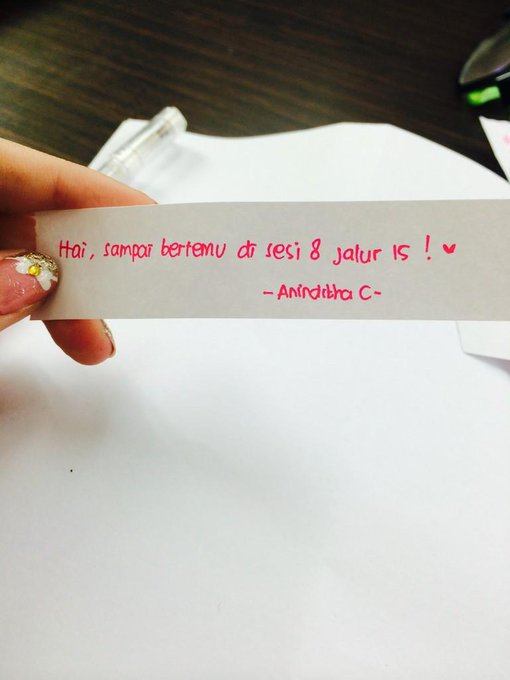 Hai, sampai bertemu di sesi 8 jalur 15 ! ♥
- Aninditha C -